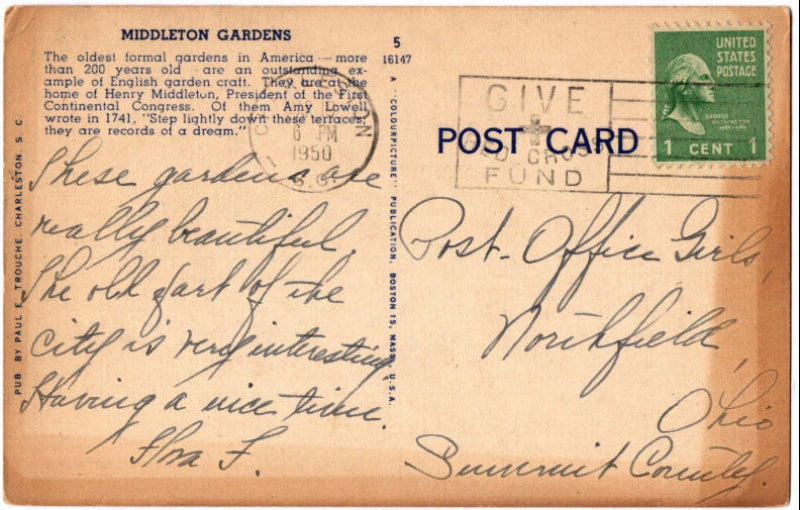 MIDDLETON GARDENS
The oldest formal gardens in America — more
than 200 years old - are an outstanding ex-
ample of English garden craft. They are at the
home of Henry Middleton, President of the First
Continental Congress. Of them Amy Lowell
wrote in 1741, "Step lightly down these terraces,
they are records of a dream."
5
16147
6 PM
1950
S.C.
GIVE
RED CROSS
FUND
UNITED
STATES
POSTAGE
GEORGE
WASHINGTON
1 CENT 1
POST CARD
PUB BY PAUL E. TROUCHE, CHARLESTON, S. C.
A "COLOURPICTURE" PUBLICATION, BOSTON 15, MASS., U.S.A.
These gardens are
really beautiful.
The old part of the
city is very interesting.
Having a nice time.
Flora F.
Post-Office Girls,
Northfield,
Ohio
Summit County.